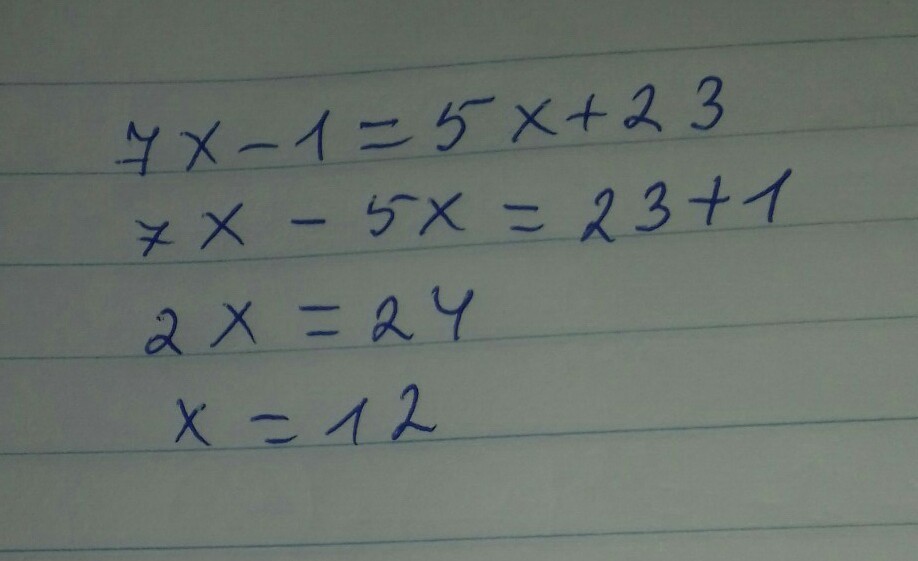 7x-1=5x+23
7x - 5x = 23+1
2x = 24
x = 12